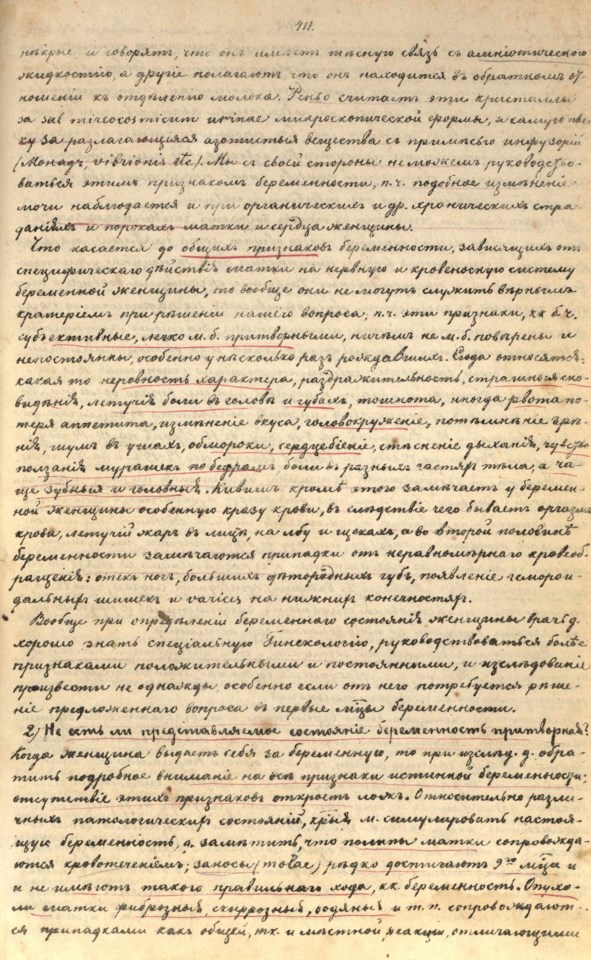 411.
нѣкрые и говорятъ, что онъ имѣетъ тѣсную связь съ амніотическою
жидкостію, а другіе полагаютъ что онъ находится въ обратномъ от-
ношеніи къ отдѣленію молока. считаетъ эти кристаллы
за микроскопической формы, а
за разлагающіяся азотистыя вещества съ примѣсью инфузорій
(Монадъ, vibrionis etc). Мы съ своей стороны не можемъ руководство-
ваться этимъ признакомъ беременности, п.ч. подобное измѣненіе
мочи наблюдается и при органическихъ и др. хроническихъ стра-
даніяхъ и порокахъ матки и сердца женщины.
Что касается до общихъ признаковъ беременности, зависящихъ отъ
специфическаго дѣйствія матки на нервную и кровеносную систему
беременной женщины, то вообще они не могутъ служить вѣрнымъ
кратеріемъ при рѣшеніи нашего вопроса, п.ч. эти признаки, кк б.ч.
субъективные, легко м. б. притворными, ничѣмъ не м. б. повѣрены и
непостоянны, особенно у нѣсколько разъ рождавшихъ. Сюда относятся:
какая то неровность характера, раздражительность, страшныя сно-
видѣнія, летучія боли въ головѣ и губахъ, тошнота, иногда рвота по-
теря аппетита, измѣненіе вкуса, головокруженіе, потемнѣніе зрѣ-
нія, шумъ въ ушахъ, обмороки, сердцебіеніе, стѣсненіе дыханія, чувство
ползанія мурашекъ по бедрамъ боли въ разныхъ частяхъ тѣла, а ча-
ще зубныя и головныя. Кивишъ кромѣ этого замѣчаетъ у беремен-
ной женщины особенную кразу крови, въ слѣдствіе чего бываетъ оргазмъ
крови, летучій жаръ въ лицѣ, на лбу и щекахъ, а во второй половинѣ
беременности замѣчаются припадки отъ неравномѣрнаго кровеоб-
ращенія: отекъ ногъ, большихъ дѣтородныхъ губъ, появленіе геморои-
дальныхъ шишекъ и varices на нижнихъ конечностяхъ.
Вообще при опредѣленіи беременнаго состоянія женщины врачъ д.
хорошо знать спеціальную Гинекологію, руководствоваться болѣе
признаками положительными и постоянными, и изслѣдованіе
произвести не однажды, особенно если отъ него потребуется рѣше-
ніе предложеннаго вопроса въ первые мѣцы беременности.
2) Не есть ли представляемое состояніе беременность притворная?
Когда женщина выдаетъ себя за беременную, то при изслѣд. д. обра-
тить подробное вниманіе на всѣ признаки истинной беременности;
отсутствіе этихъ признаковъ откроетъ ложь. Относительно разли-
чныхъ патологическихъ состояній, крыя м. симулировать настоя-
щую беременность, д. замѣтить, что полипы матки сопровожда-
ются кровотеченіемъ; заносы (molae) рѣдко достигаютъ 9го мѣца и
и не имѣютъ такого правильнаго хода, кк. беременность. Опухо-
ли матки фиброзныя, скиррозныя, водяныя и т. п. сопровождают-
ся припадками какъ общей, тк. и мѣстной реакціи, отличающими